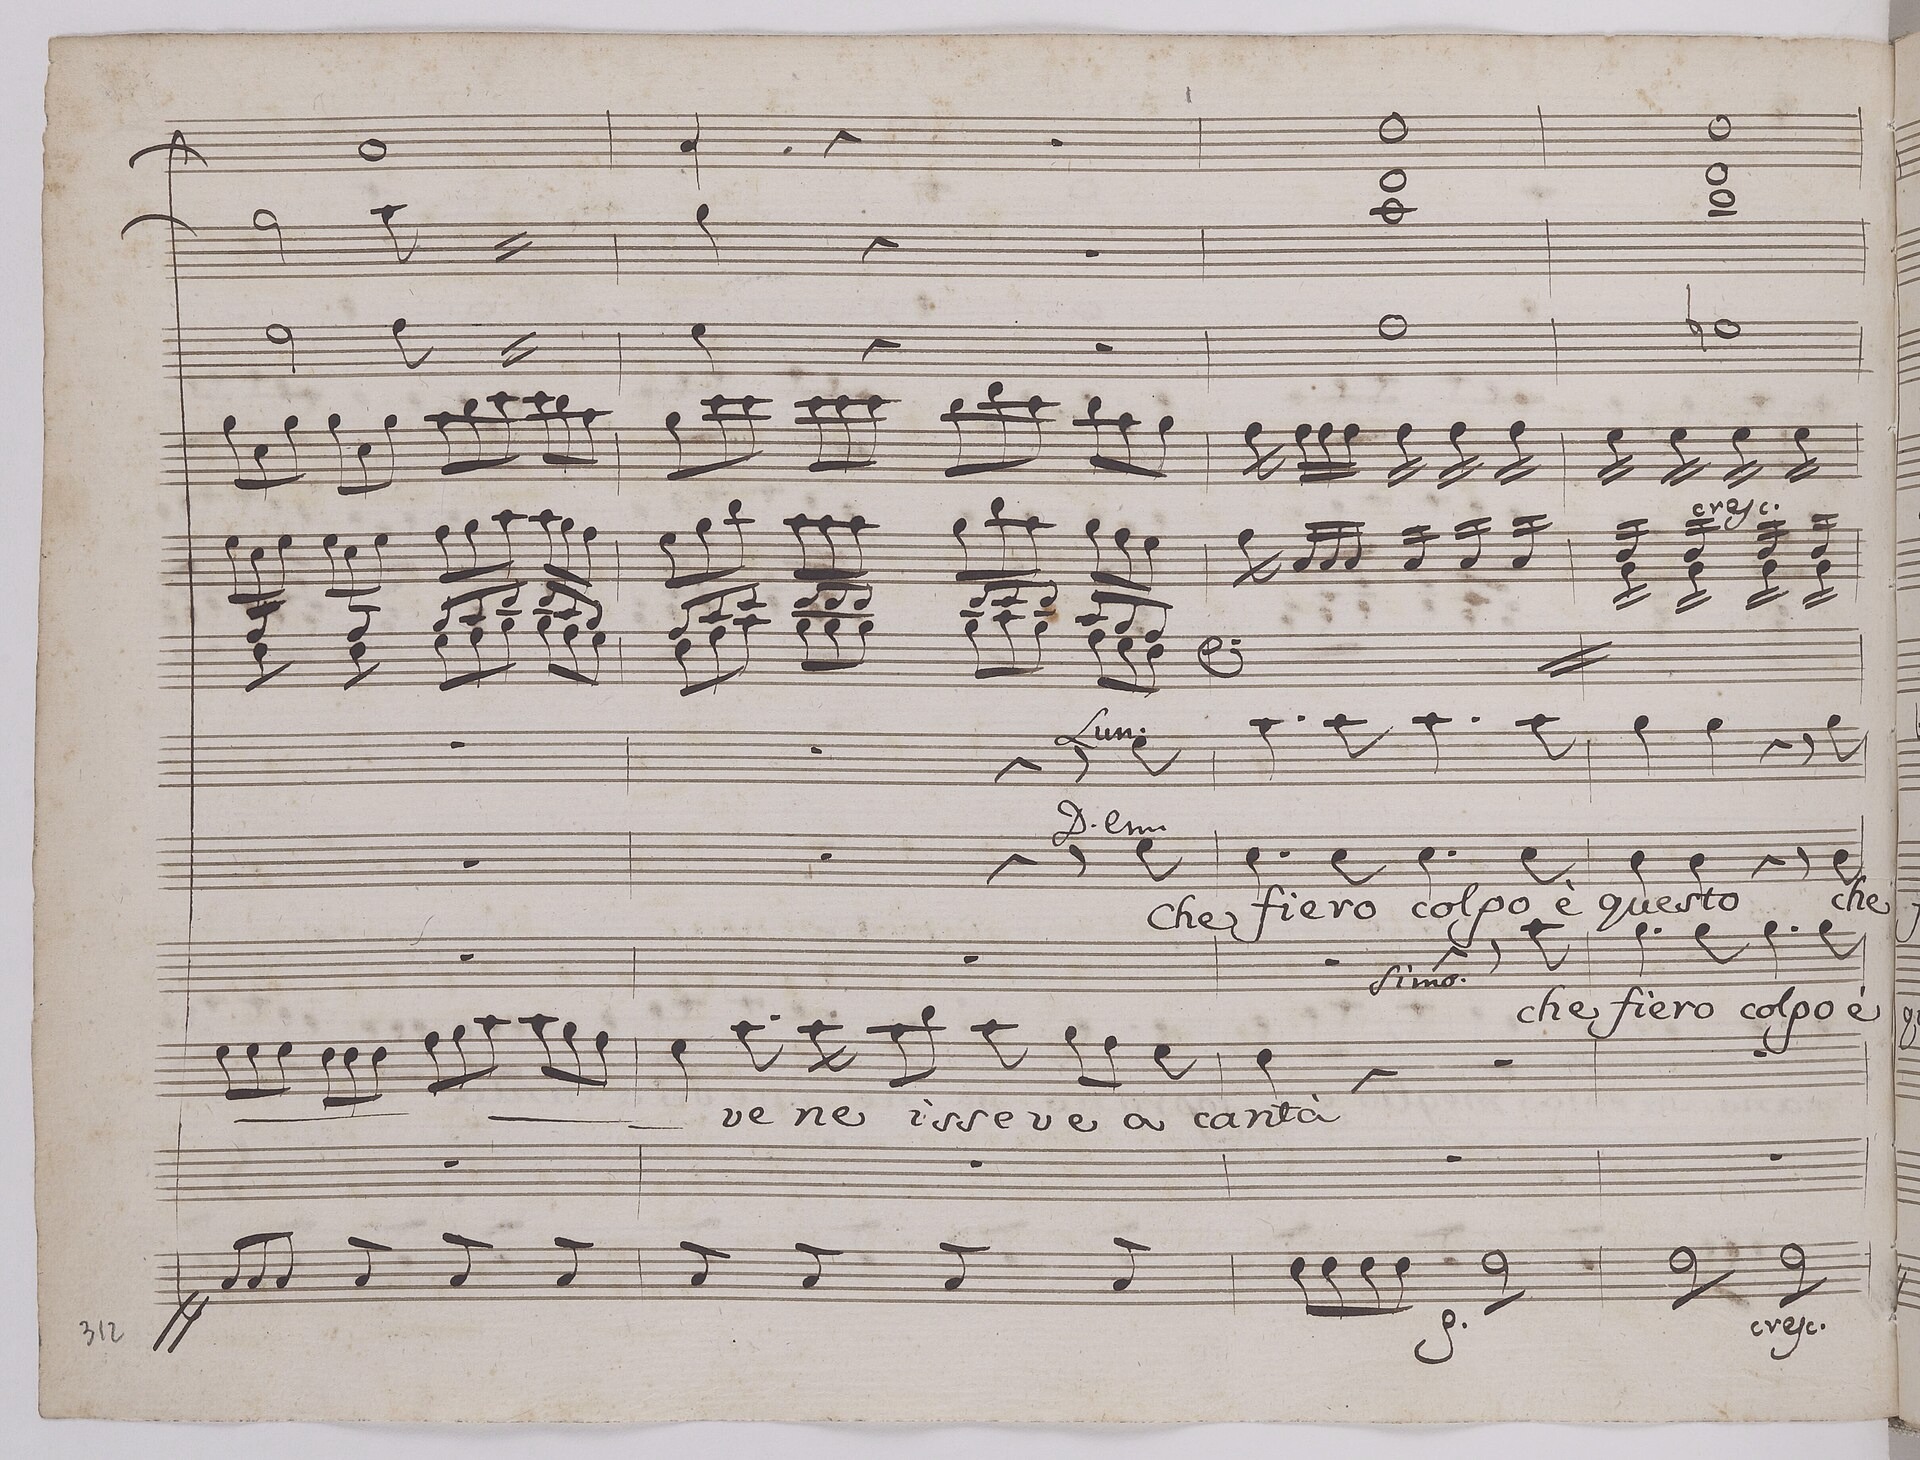 cresc.
Lun.
D. em.
Che fiero colpo è questo che
Simo.
che fiero colpo è
ve ne isseve a cantà
p.
cresc.
312